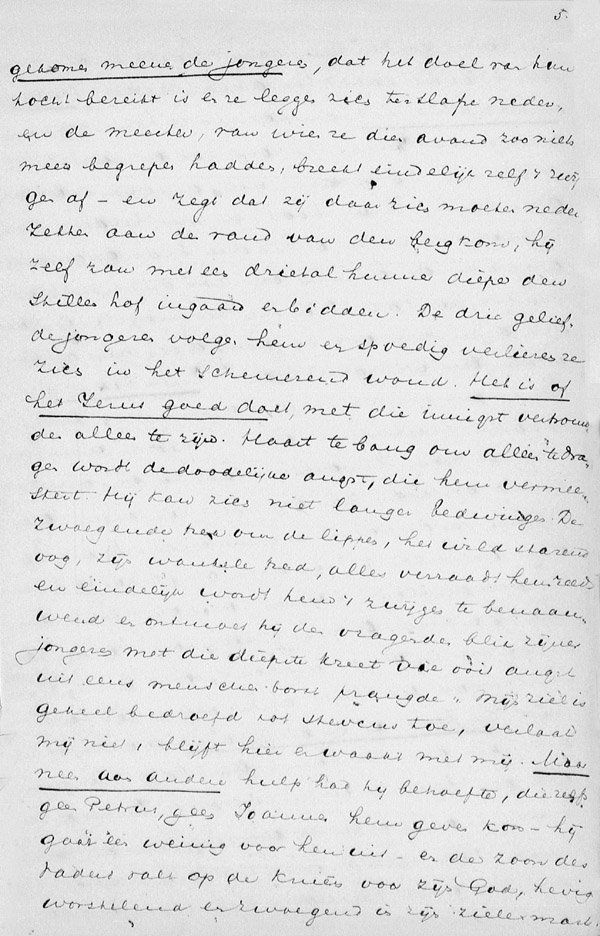 5.
gekomen meenen de jongeren, dat het doel van hun
tocht bereikt is en ze leggen zich ter slape neder,
en de meester, van wien ze dien avond zoo niets
meer begrepen hadden, breekt eindelijk zelf 't zwij
gen af – en zegt dat zij daar zich moeten neder
zetten aan de rand van den bergkom, hij
zelf zou met een drietal hunner dieper den
stillen hof ingaan en bidden. De drie gelief-
de jongeren volgen hem en spoedig verliezen ze
zich in het schemerend woud. Het is of
het Jezus goed doet, met die innigst vertrouw
den alleen te zijn. Haast te bang om alleen te dra-
gen wordt de doodelijke angst, die hem vermee-
stert. Hij kan zich niet langer bedwingen. De
zwoegende trek om de lippen, het wild starend
oog, zijn wankele tred, alles verraadt hem reeds
en eindelijk wordt hem 't zwijgen te benaau-
wend en ontmoet hij den vragenden blik zijner
jongeren met die diepste kreet die ooit angst
uit eens menschen borst prangde "Mijn ziel is
geheel bedroefd tot stervens toe, verlaat
mij niet, blijft hier en waakt met mij. Maar
neen aan andere hulp had hij behoefte, die
geen Petrus, geen Joannes hem geven kon – hij
gaat een weinig voor hen uit – en de zoon des
Vaders valt op de knieën voor zijn God, hevig
worstelend en zwoegend in zijn zielesmart.